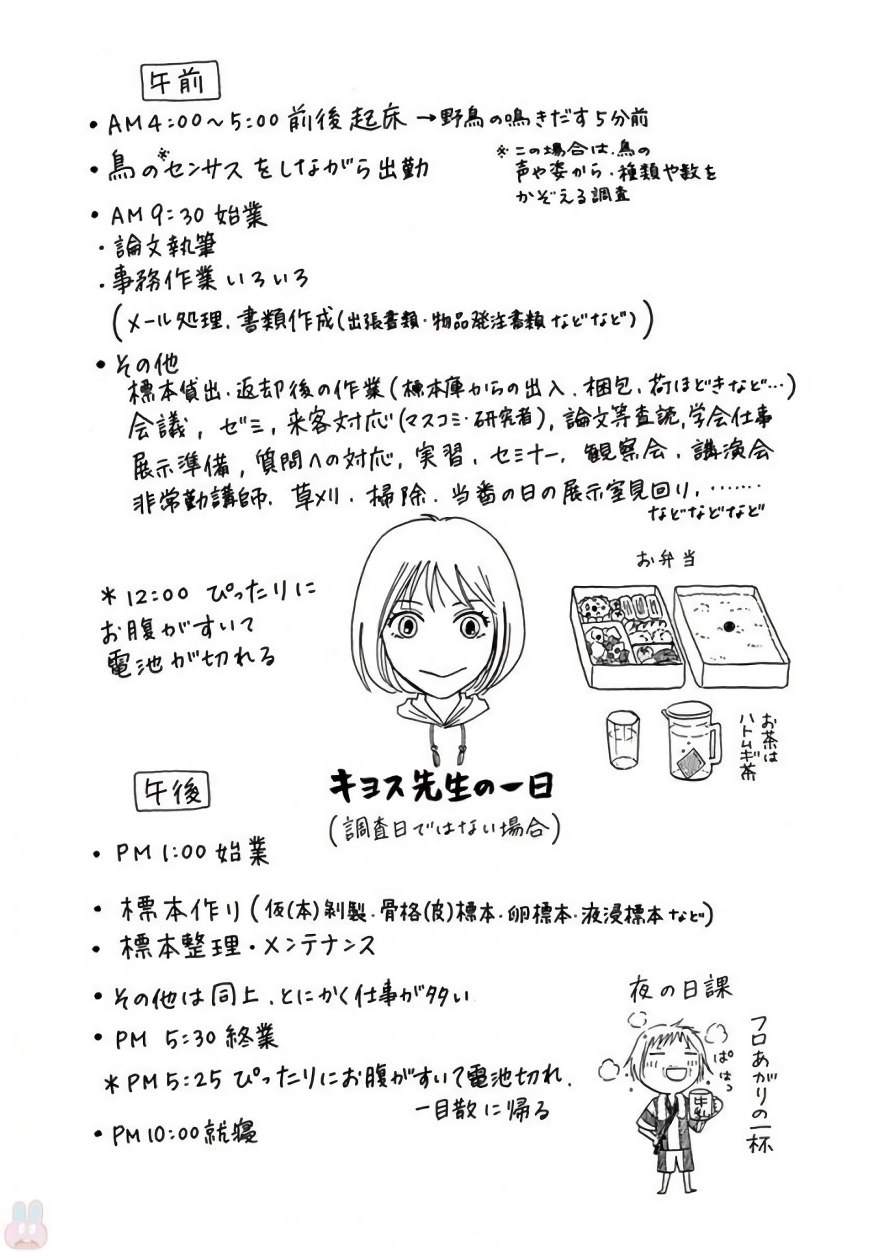 午前
・AM4:00〜5:00 前後 起床 →野鳥の鳴きだす5分前
・鳥の※センサスをしながら出勤
※この場合は、鳥の
声や姿から、種類や数を
かぞえる調査
・AM9:30 始業
・論文執筆
・事務作業いろいろ
(メール処理、書類作成(出張書類・物品発注書類などなど))
・その他
標本貸出・返却後の作業(標本庫からの出入、梱包、荷ほどきなど…)
会議, ゼミ, 来客対応(マスコミ・研究者), 論文等査読, 学会仕事
展示準備, 質問への対応, 実習、セミナー, 観察会、講演会
非常勤講師、草刈り、掃除、当番の日の展示室見回り、……
などなどなど
*12:00 ぴったりに
お腹がすいて
電池が切れる
お弁当
お茶は
ハトムギ茶
キヨス先生の一日
(調査日ではない場合)
午後
・PM1:00始業
・標本作り(仮(本)剥製・骨格(皮)標本・卵標本・液浸標本など)
・標本整理・メンテナンス
・その他は同上、とにかく仕事が多い
・PM 5:30 終業
*PM5:25 ぴったりにお腹がすいて電池切れ、
一目散に帰る
・PM10:00就寝
夜の日課
フロあがりの一杯
ぱはっ
牛乳